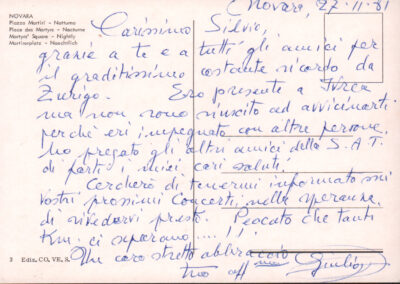 NOVARA
Piazza Martiri - Notturno
Place des Martyrs - Nocturne
Martyrs' Square - Nightly
Martirerplatz - Naechtlich
Novara, 27-11-81
Carissimo Silvio,
grazie a te e a tutti gli amici per
il graditissimo costante ricordo da
Zurigo. Ero presente a Ivrea
ma non sono riuscito ad avvicinarti
perchè eri impegnato con altre persone.
Ho pregato gli altri amici della S.A.T.
di parti i miei cari saluti.
Cercherò di tenermi informato sui
vostri prossimi Concerti, nella speranza
di rivedervi presto. Peccato che tanti
Km. ci separano....!!
Un caro stretto abbraccio
tuo aff Giulio
2 Ediz. CO. VE. S.